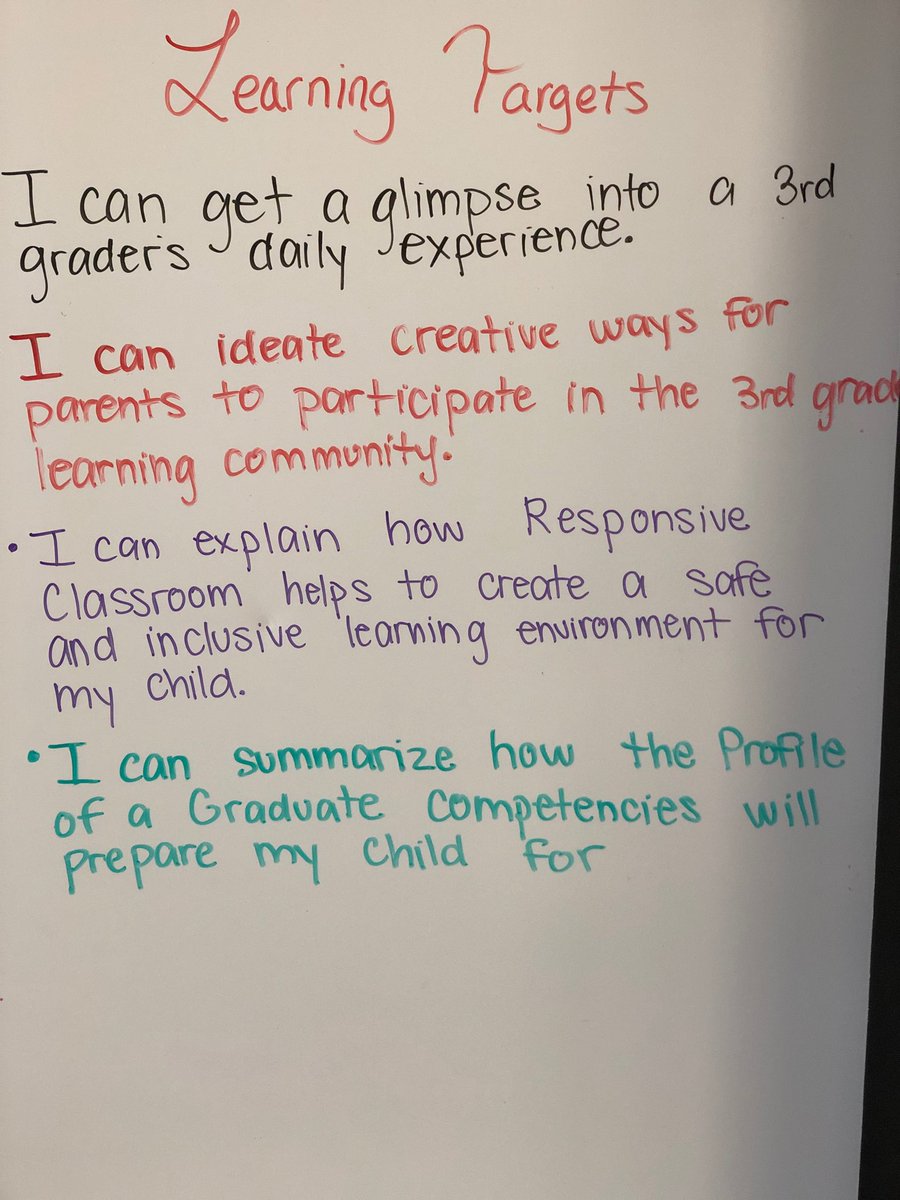 Learning Targets
I can get a glimpse into a 3rd
grader's daily experience.
I can ideate creative ways for
parents to participate in the 3rd grade
learning community.
• I can explain how Responsive
Classroom helps to create a safe
and inclusive learning environment for
my child.
• I can summarize how the Profile
of a Graduate Competencies will
prepare my child for